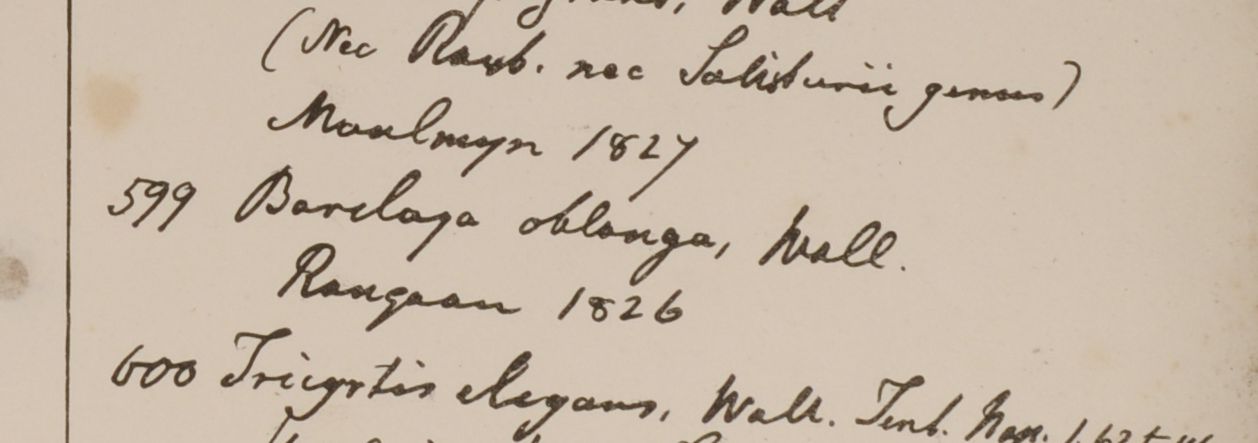 Wall
(Nec Roxb. nec Salisburii genus)
Moulmyn 1827
599 Barclaya oblonga, Wall.
Rangoon 1826
600 Tricyrtis elegans, Wall. Tent. Nap. 1, 62 t.